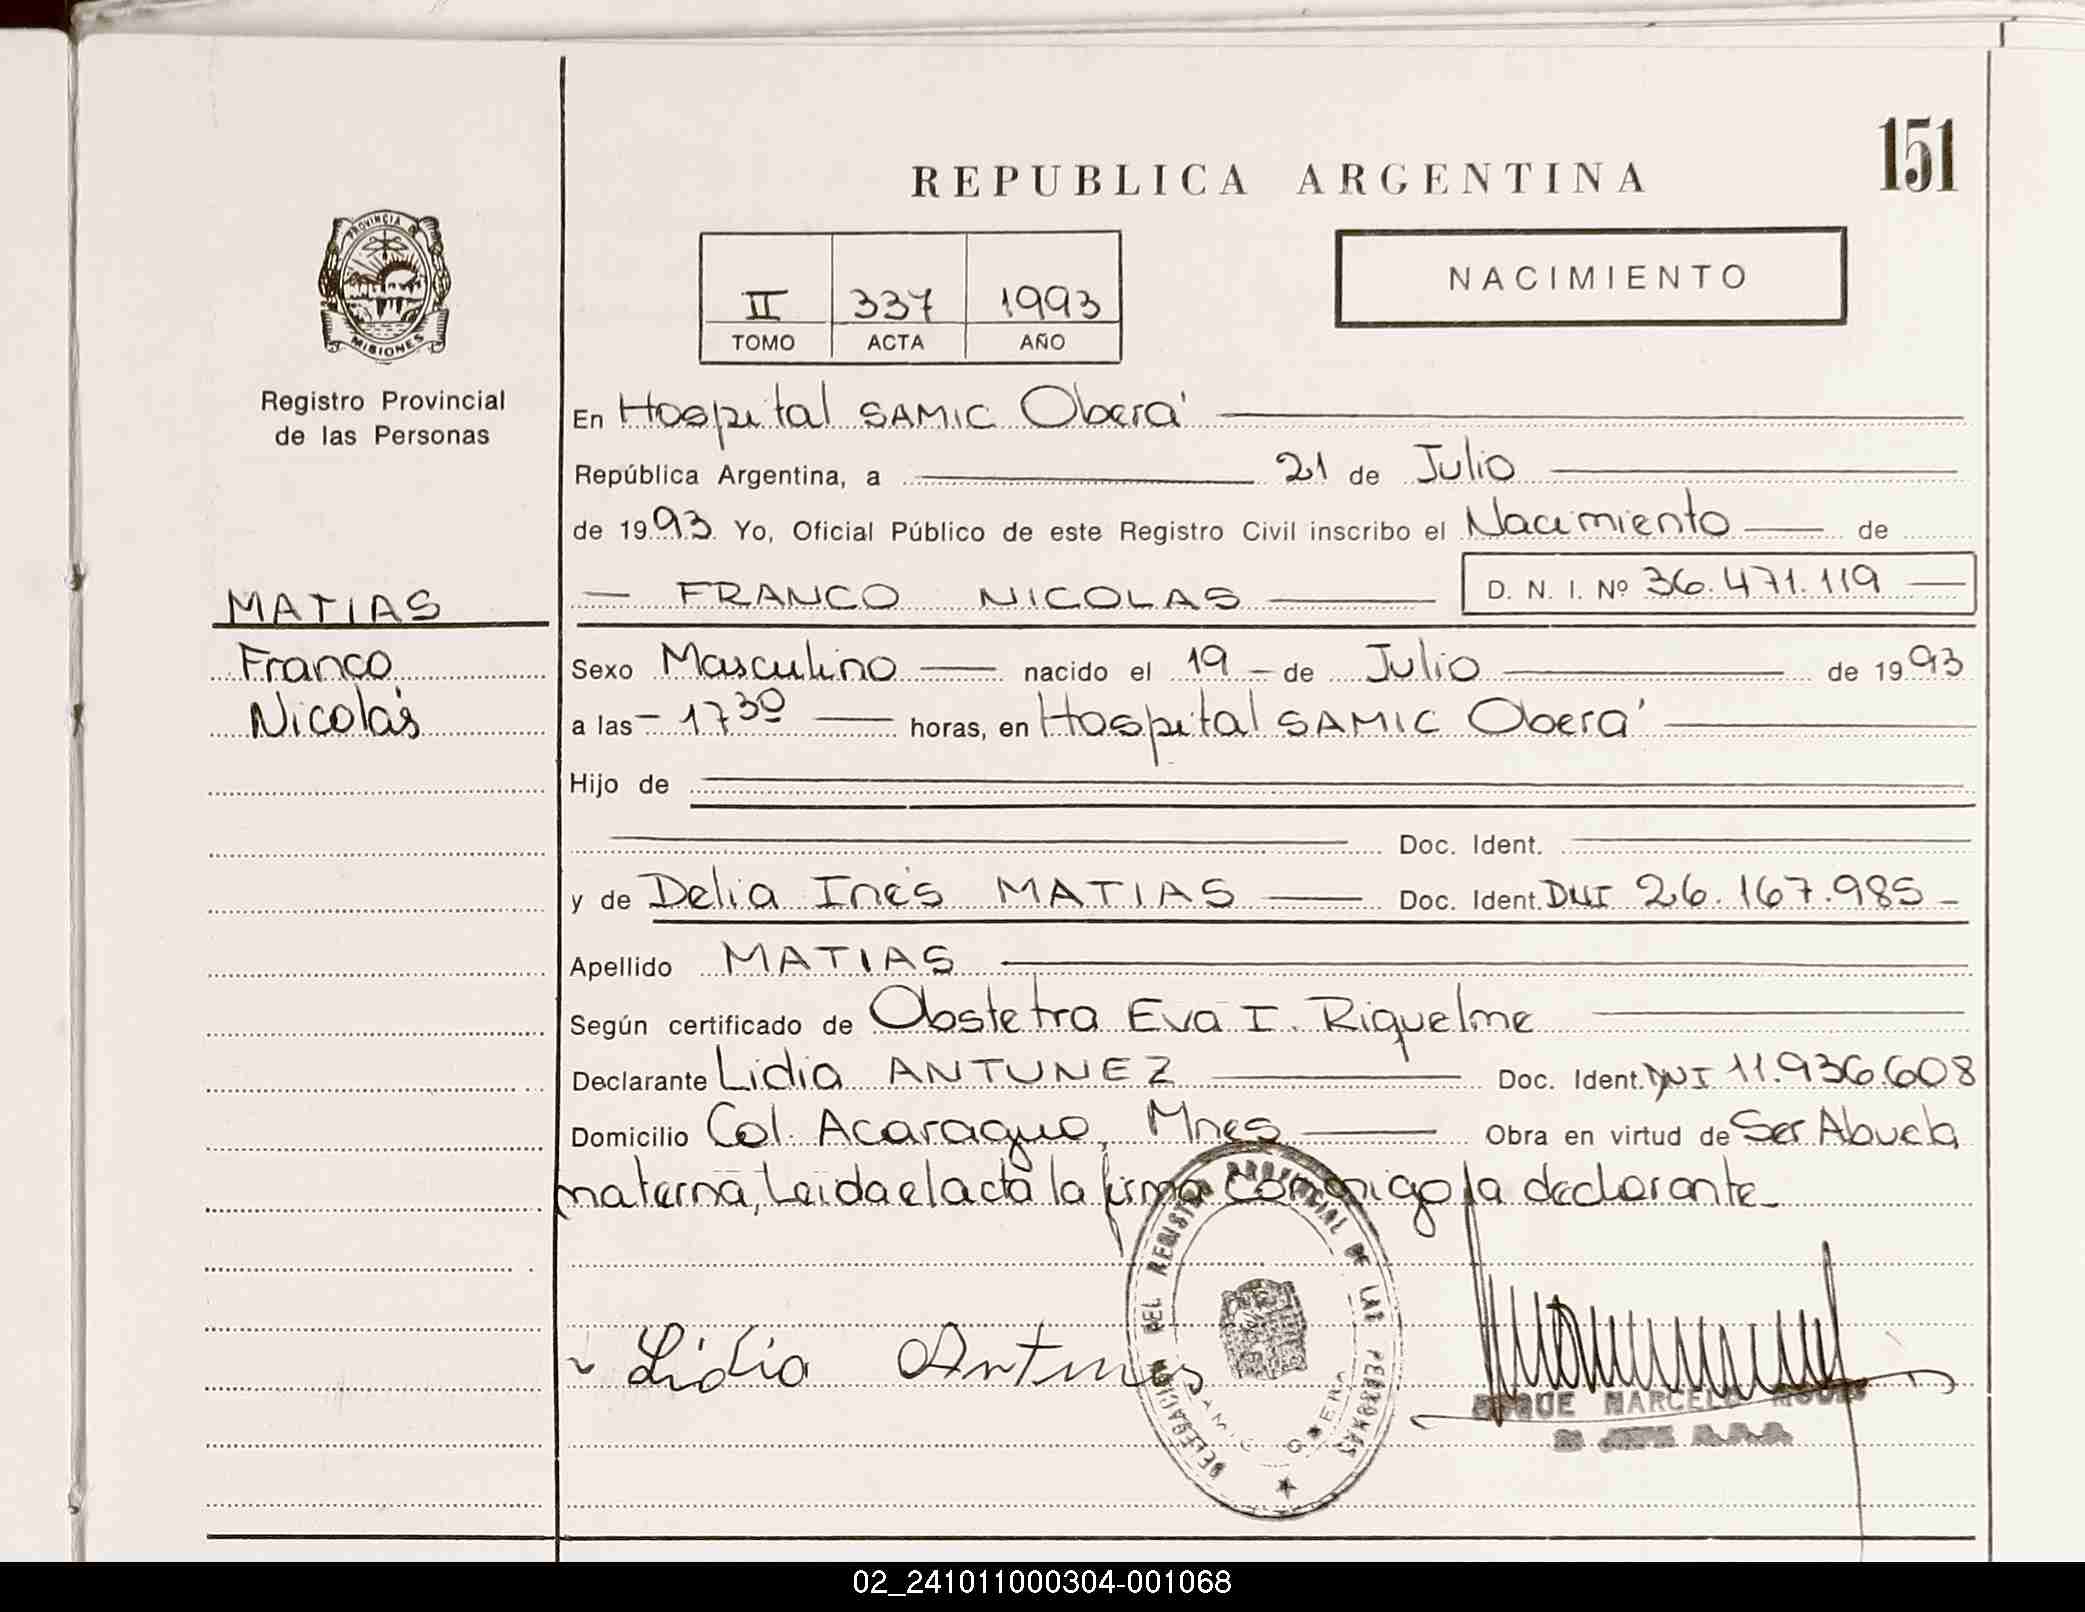 151
REPUBLICA ARGENTINA
PROVINCIA DE
MISIONES
II 337 1993
TOMO ACTA AÑO
NACIMIENTO
Registro Provincial
de las Personas
En Hospital SAMIC Oberá
República Argentina, a 21 de Julio
de 1993 Yo, Oficial Público de este Registro Civil inscribo el Nacimiento de
MATIAS
FRANCO NICOLAS D. N. I. Nº 36.471.119
Franco
Sexo Masculino nacido el 19 de Julio de 1993
Nicolás
a las 17 30 horas, en Hospital SAMIC Oberá
Hijo de
Doc. Ident.
y de Delia Inés MATIAS Doc. Ident. DNI 26.167.985
Apellido MATIAS
Según certificado de Obstetra Eva I. Riquelme
Declarante Lidia ANTUNEZ Doc. Ident. DNI 11.936.608
Domicilio Col. Acaraguo, Mnes Obra en virtud de Ser Abuela
materna, Leida el acta la firma conmigo la declarante
DELEGACION DEL REGISTRO PROVINCIAL DE LAS PERSONAS
SAMIC OBERA
Lidia Antunes
ROQUE MARCELO
02_241011000304-001068